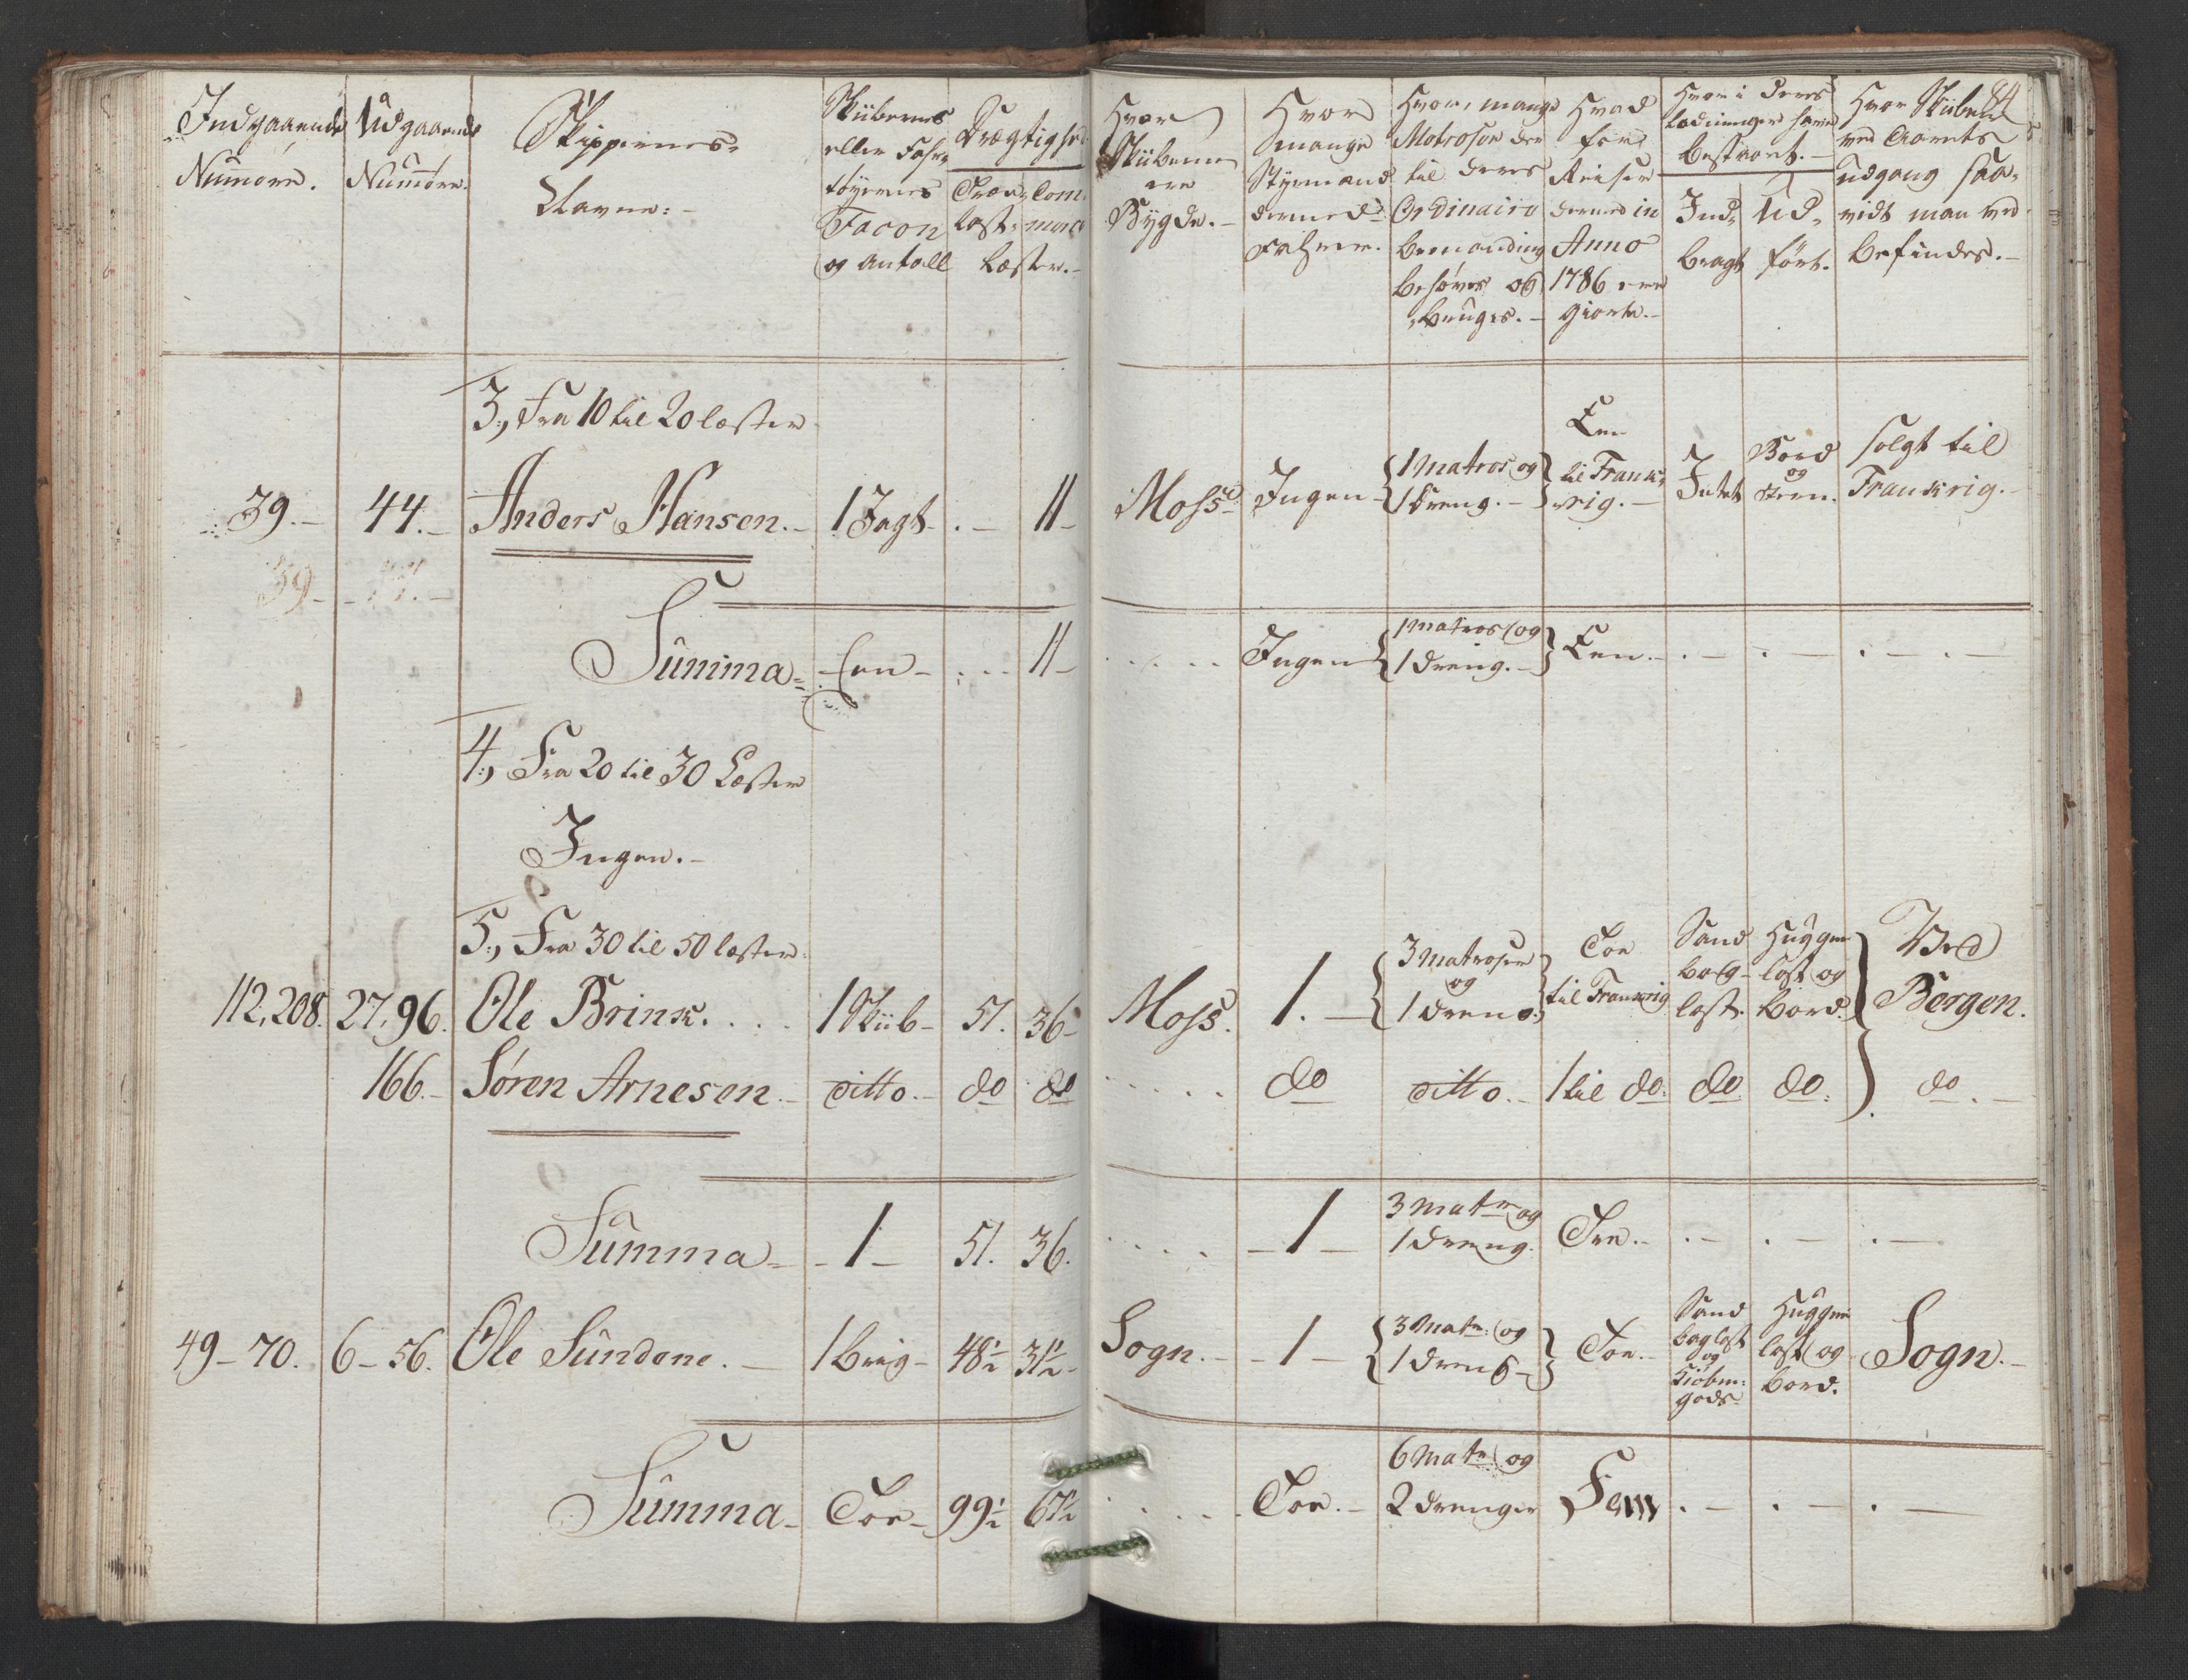 84
Indgaaende Numere.
Udgaaende Numere.
Skippernes Navne:-
Skibernes eller Fahrtöyernes Facon og antall
Drægtighed
Træe-Læst- Com-merce Læster.-
Hvor Skibene ere Bÿgde.-
Hvor mange Styrmænd dermed Fahrer.
Hvor mange Matroser der til deres Ordinaire bemanding behöves og bruges.-
Hvad for Reiser dermed in Anno 1786 ere giorte.-
Hvor i deres ladninger have bestaaet.-
Ind-bragt
Ud-fört.
Hvor Skibene ved Aarets Udgang saa-vidt man ved befindes.-
3, Fra 10 til 20 læster
39.- 44.- Anders Hansen.- 1 Jagt- .- 11- Moss Ingen- {1 Matros og 1 dreng.-} Een til Frankrig.- Intet Bord og Steen. solgt til Frankrig.-
39- 44.-
Summa- Een- 11- Ingen {1 matros og 1 dreng.-} Een.-
4, Fra 20 til 30 Læster
Ingen.-
5, Fra 30 til 50 læster
112,208. 27,96. Ole Brink. 1 Skib- 51. 36- Moss. 1.- {3 matroser og 1 dreng} Toe til Frankrig Sand baglast. Huggen last og bord. Ved Bergen.
166.- Sören Arnesen.- ditto.- do do do ditto.- 1 til do. do. do. do.-
Summa- -1- 51. 36. -1- 3 matr og 1 dreng. Tre.-
49-70. 6-56. Ole Sundene.- 1 Brig- 48½ 31½- Sogn.- -1- {3 Matr. og 1 dreng-} Toe.- Sand baglast og Kiöbm: gods Huggen last og bord. Sogn.-
Summa- Toe- 99½ 67½ Toe.- 6 Matr og 2 drenger Fem